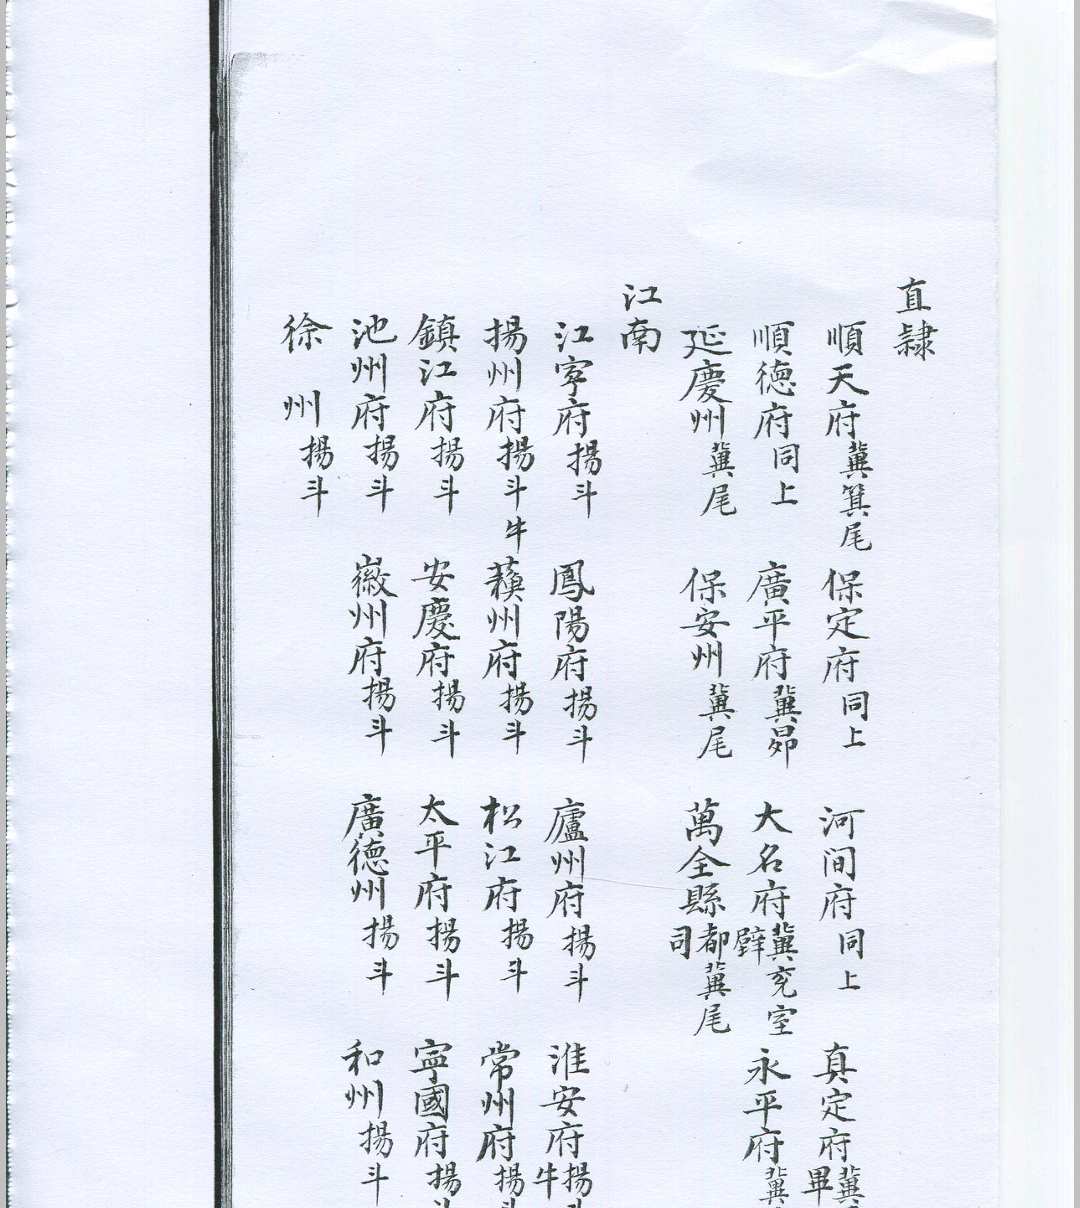 直隸
順天府冀箕尾 保定府同上 河间府同上 真定府冀 畢
順德府同上 廣平府冀昴 大名府冀兖室 壁 永平府冀
延慶州冀尾 保安州冀尾 萬全縣都 司 冀尾
江南
江寧府揚斗 鳳陽府揚斗 廬州府揚斗 淮安府揚斗 牛
揚州府揚斗牛 蘓州府揚斗 松江府揚斗 常州府揚斗
鎮江府揚斗 安慶府揚斗 太平府揚斗 寧國府揚斗
池州府揚斗 徽州府揚斗 廣德州揚斗 和州揚斗
徐州揚斗